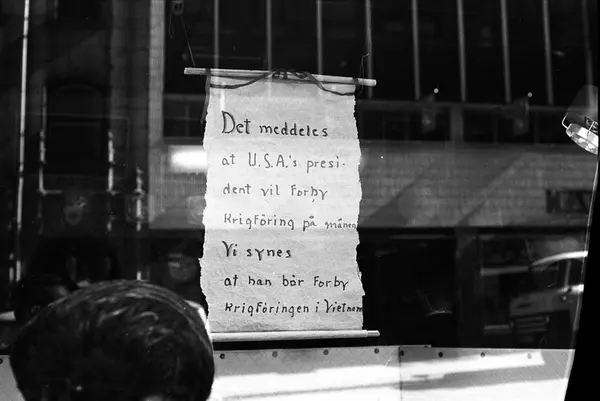 Det meddeles
at U.S.A.'s presi-
dent vil forby
krigföring på månen
Vi synes
at han bör forby
krigföringen i Vietnam